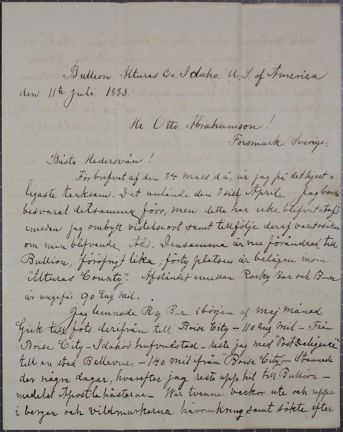 Bullion, Alturas Co. Idaho. U. S. of America
den 11te Juli 1883.
Hr Otto Abrahamson!
Forsmark, Sverige.
Bästa Hedersvän!
För brefvet af den 24 mars d.å. är jag på det hjert-
ligaste tacksam. Det anlände den April. Jag borde
besvarat detsamma förr, men detta har icke blifvit utaf
emedan jag ombytt vistelseort samt tillfölje deraf varit osäker
om min blifvande Adr. Densamma är nu förändrad till
Bullion, lika, förty platsen är belägen inom
"Alturas County". Afståndet emellan Rocky Bar och B-n
är ungefär 90 Eng. Mil.
Jag lemnade R-y B-r i början af maj månad
Gick till fots derifrån till Boise City - 110 Eng Mil - Från
Boise City - Idahos hufvudstad - reste jag med "Post Deligence"
till en stad Bellevue, - 140 mil från Boise City - Stannade
der några dagar, hvarefter jag reste upp hit till Bullion -
medelst Apostlahästarna - War tvenne veckor ute och uppe
i bergen och vildmarkerna häromkring samt sökte efter